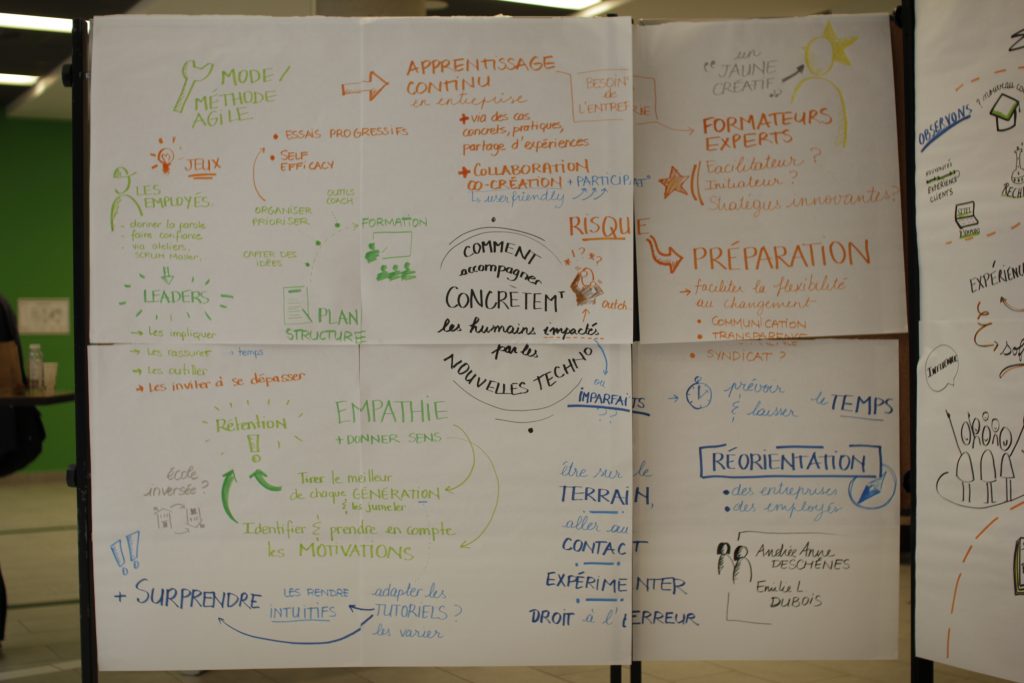 MODE/
MÉTHODE
AGILE
APPRENTISSAGE
CONTINU
en entreprise
+ via des cas
concrets, pratiques,
partage d'expériences
+ COLLABORATION
CO-CRÉATION + PARTICIPAT°
↳ userfriendly
BESOIN
de
L'ENTREPRISE
un
"JAUNE
CRÉATIF"
FORMATEURS
EXPERTS
Facilitateur ?
Initiateur ?
Stratégies innovantes ?
• ESSAIS PROGRESSIFS
• SELF
EFFICACY
JEUX
LES
EMPLOYÉS
• donner la parole
• faire confiance
• via ateliers,
SCRUM Master.
LEADERS
→ Les impliquer
→ Les rassurer + temps
→ Les outiller
→ Les inviter à se dépasser
ORGANISER
PRIORISER
CAPTER DES
IDÉES
OUTILS
COACH
FORMATION
PLAN
STRUCTURE
COMMENT
accompagner
CONCRÈTEMT
les humains impactés
par les
NOUVELLES TECHNO
RISQUE
*!?*
Ouch
ou
IMPARFAITS
??
PRÉPARATION
→ faciliter la flexibilité
au changement
• COMMUNICATION
TRANSPARENCE
• SYNDICAT ?
→ prévoir
& laisser le TEMPS
RÉORIENTATION
• des entreprises
• des employés
Andrée Anne
DESCHÊNES
Emilie L
DUBOIS
Rétention
!
EMPATHIE
+ DONNER SENS
école
inversée ?
Tirer le meilleur
de chaque GÉNÉRATION
& les jumeler
Identifier & prendre en compte
les MOTIVATIONS
!!
+ SURPRENDRE
LES RENDRE
INTUITIFS
adapter les
TUTORIELS ?
les varier
être sur le
TERRAIN,
aller au
CONTACT
EXPÉRIMENTER
DROIT à l'ERREUR
OBSERVONS
EXPÉRIENCE
CLIENTS
RECH
EXPÉRIENC